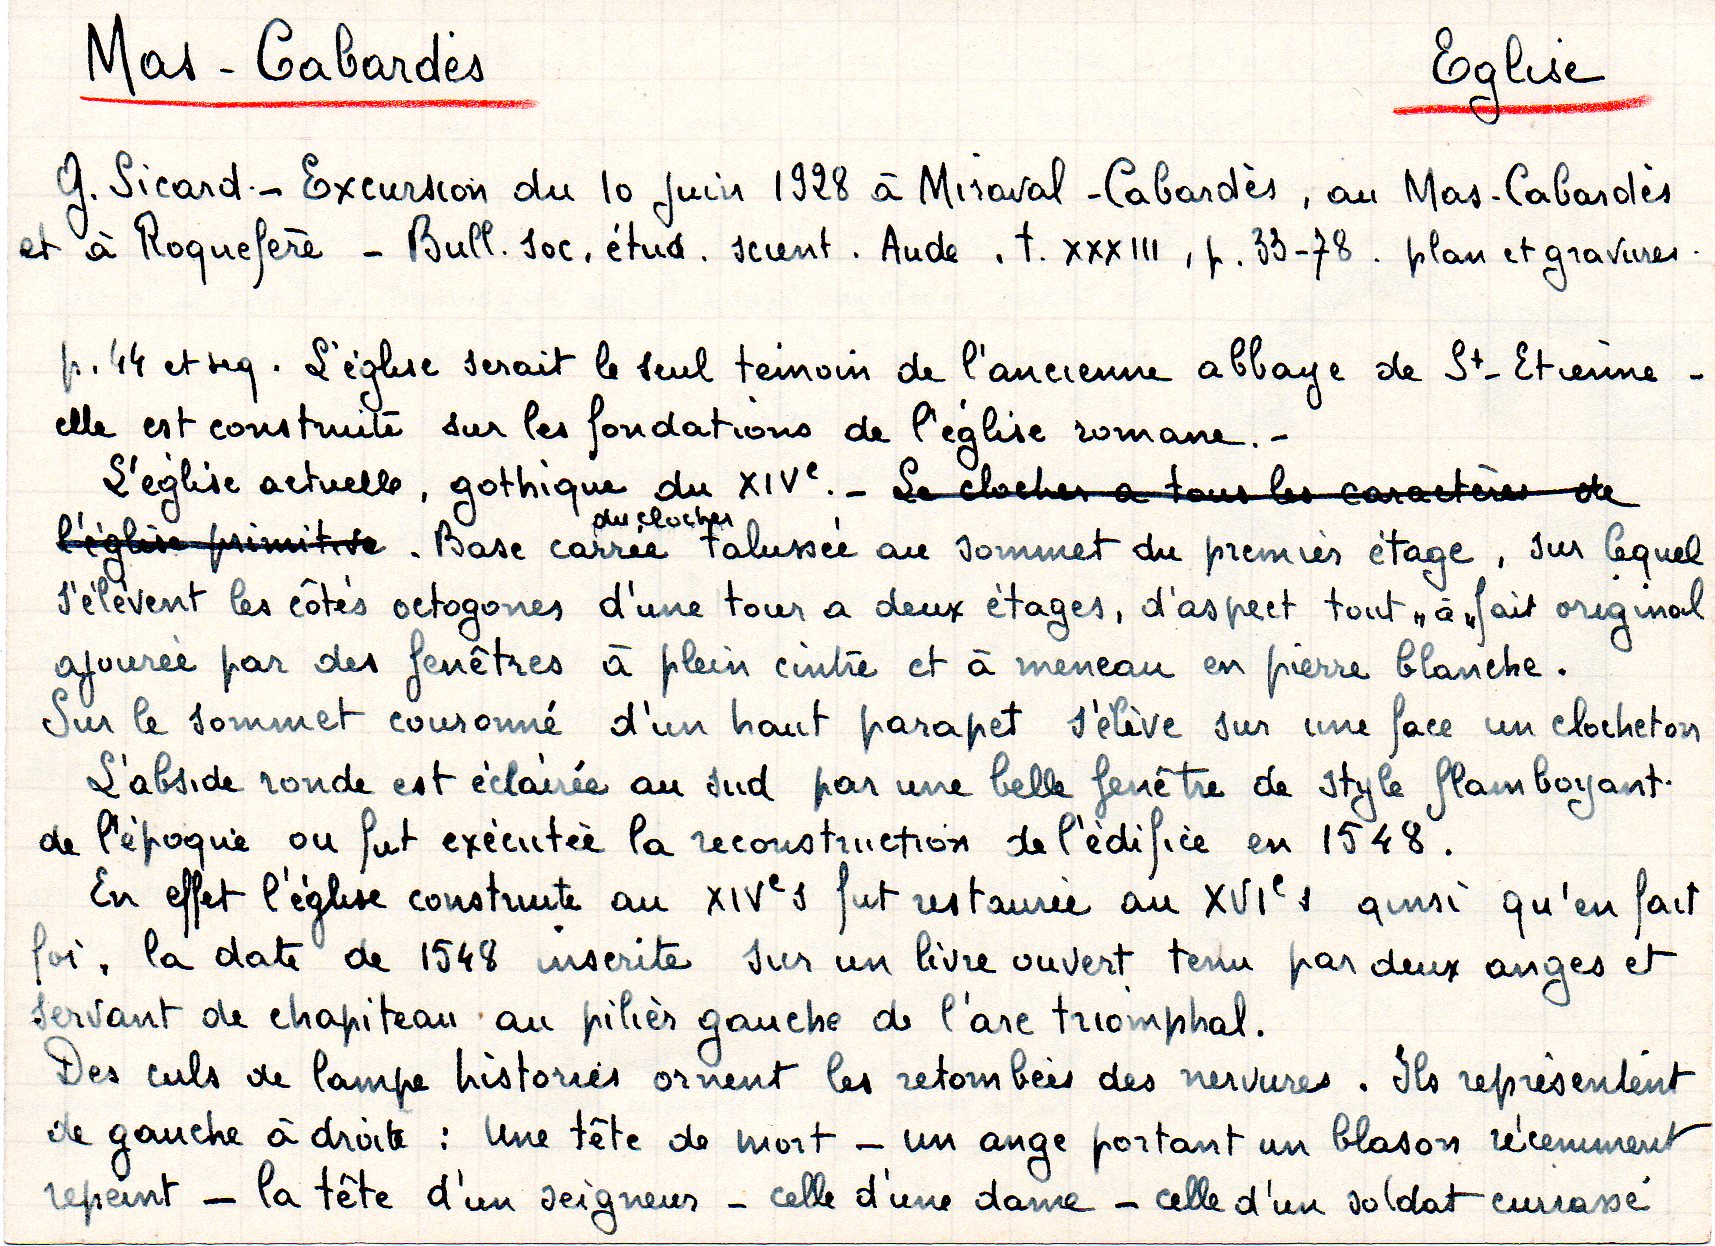 Mas-Cabardès Eglise
G. Sicard.- Excursion du 10 juin 1928 à Miraval-Cabardès, au Mas-Cabardès
et à Roquefère - Bull. soc. étud. scient. Aude. t. XXXIII, p. 33-78. plan et gravures.
p. 44 et seq. L'église serait le seul témoin de l'ancienne abbaye de St-Etienne -
elle est construite sur les fondations de l'église romane.-
L'église actuelle, gothique du XIVe.- Le clocher a tous les caractères de
du clocher
l'église primitive. Base carrée talussée au sommet du premier étage, sur lequel
s'élèvent les côtés octogones d'une tour a deux étages, d'aspect tout "à" fait original
ajourée par des fenêtres à plein cintre et à meneau en pierre blanche.
Sur le sommet couronné d'un haut parapet s'élève sur une face un clocheton
L'abside ronde est éclairée au sud par une belle fenêtre de style flamboyant.
de l'époque ou fut exécutée la reconstruction de l'édifice en 1548.
En effet l'église construite au XIVe s fut restaurée au XVIe s ainsi qu'en fait
foi, la date de 1548 inscrite sur un livre ouvert tenu par deux anges et
servant de chapiteau au pilier gauche de l'arc triomphal.
Des culs de lampe historiés ornent les retombées des nervures. Ils représentent
de gauche à droite : Une tête de mort - un ange portant un blason récemment
repeint - la tête d'un seigneur - celle d'une dame - celle d'un soldat cuirassé